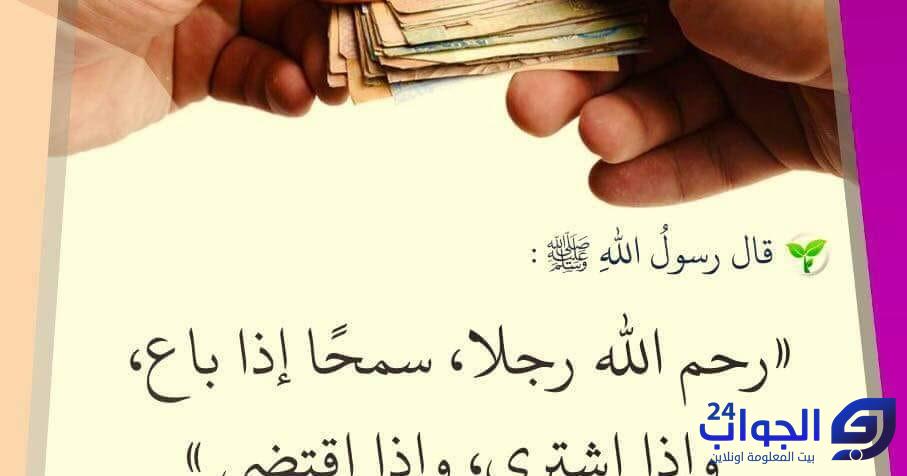 قال رسولُ اللهِ ﷺ :
«رحم الله رجلا، سمحًا إذا باع،
وإذا اشترى، وإذا اقتضى »
الجواب 24
بيت المعلومة اونلاين